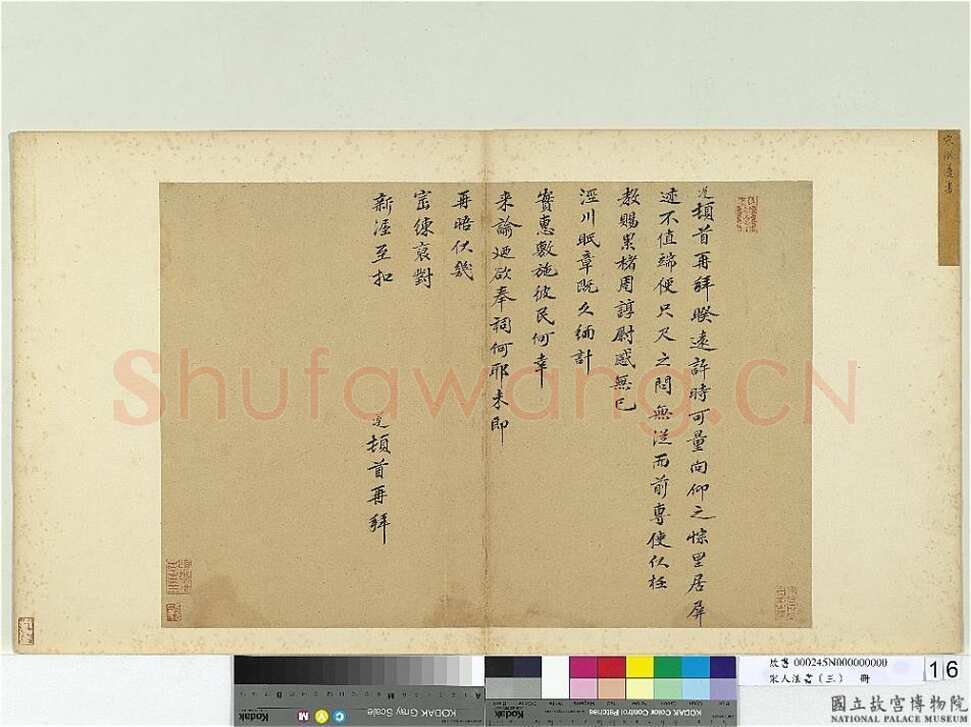 頓首再拜暌遠許時可量向仰之悰里居屏
迹不值端便只尺之問無從而前專使從枉
教賜累楮周諄慰感無已
涇川眠章既久緬計
實惠敷施彼民何幸
來諭廼欲奉祠何耶未即
再晤伏幾
密練褱對
新渥至扣
頓首再拜
Shufawang.CN
故書 000245N000000000
宋人法書(三) 冊
16
國立故宮博物院
NATIONAL PALACE MUSEUM
Kodak
KODAK Gray Scale
C
Y
M
Kodak
KODAK Color Control Patches